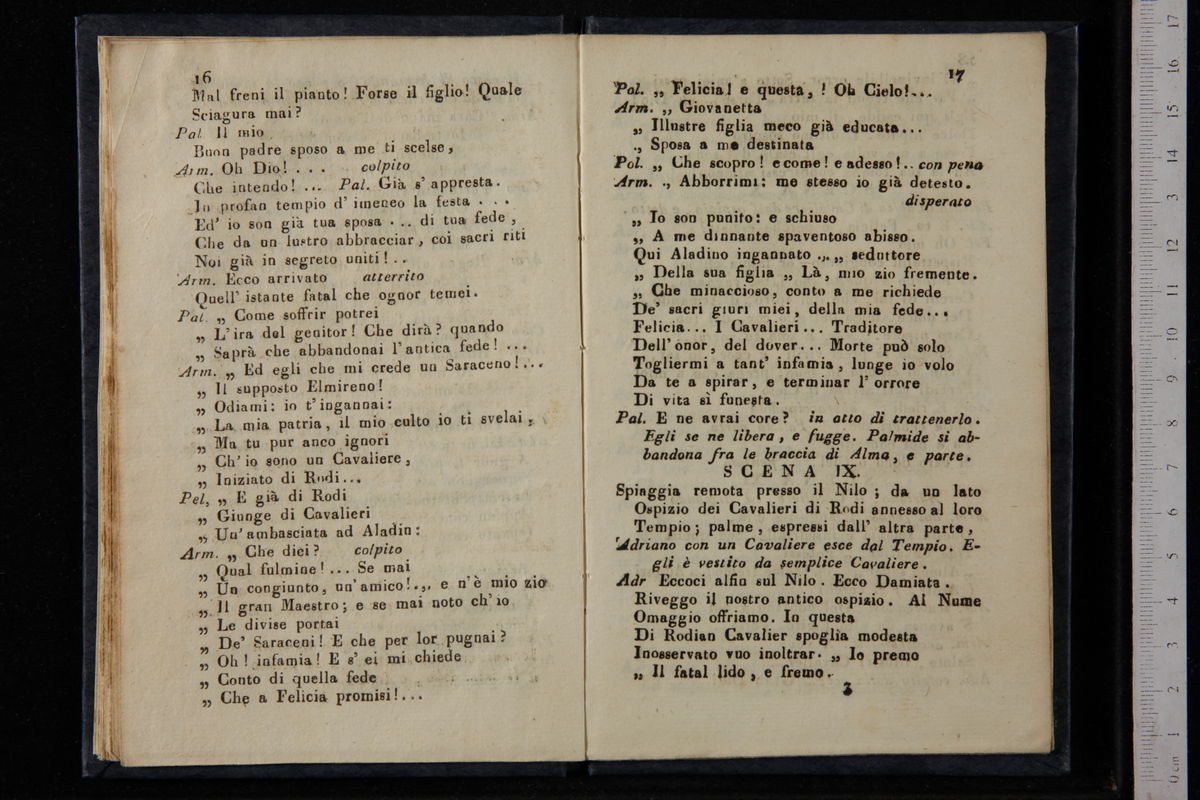 16
Mal freni il pianto! Forse il figlio! Quale
Sciagura mai?
Pal Il mio
Buon padre sposo a me ti scelse,
Arm. Oh Dio! . . . colpito
Che intendo! ... Pal. Già s' appresta.
In profan tempio d' imeneo la festa . . .
Ed' io son già tua sposa . .. di tua fede,
Che da un lustro abbracciar, coi sacri riti
Noi già in segreto uniti! . .
Arm. Ecco arrivato atterrito
Quell' istante fatal che ognor temei.
Pal. „ Come soffrir potrei
„ L'ira del genitor! Che dirà? quando
„ Saprà che abbandonai l'antica fede! ...
Arm. „ Ed egli che mi crede un Saraceno!...
„ Il supposto Elmireno!
„ Odiami: io t'ingannai:
„ La mia patria, il mio culto io ti svelai,
„ Ma tu pur anco ignori
„ Ch' io sono un Cavaliere,
„ Iniziato di Rodi...
Pel, „ E già di Rodi
„ Giunge di Cavalieri
„ Un' ambasciata ad Aladin:
Arm. „ Che dici? colpito
„ Qual fulmine! ... Se mai
„ Un congiunto, un'amico!... e n'è mio zio
„ Il gran Maestro; e se mai noto ch'io
„ Le divise portai
„ De' Saraceni! E che per lor pugnai?
„ Oh! infamia! E s' ei mi chiede
„ Conto di quella fede
„ Che a Felicia promisi!...
17
Pol. „ Felicia! e questa, ! Oh Cielo!...
Arm. „ Giovanetta
„ Illustre figlia meco già educata...
„ Sposa a me destinata
Pol. „ Che scopro! e come! e adesso!.. con pena
Arm. „ Abborrimi: me stesso io già detesto.
disperato
„ Io son punito: e schiuso
„ A me dinnante spaventoso abisso.
Qui Aladino ingannato ... „ seduttore
„ Della sua figlia „ Là, mio zio fremente.
„ Che minaccioso, conto a me richiede
De' sacri giuri miei, della mia fede...
Felicia... I Cavalieri... Traditore
Dell' onor, del dover... Morte può solo
Togliermi a tant' infamia, lunge io volo
Da te a spirar, e terminar l' orrore
Di vita sì funesta.
Pal. E ne avrai core? in atto di trattenerlo.
Egli se ne libera, e fugge. Palmide si ab-
bandona fra le braccia di Alma, e parte.
SCENA IX.
Spiaggia remota presso il Nilo; da un lato
Ospizio dei Cavalieri di Rodi annesso al loro
Tempio; palme, espressi dall' altra parte,
Adriano con un Cavaliere esce dal Tempio. E-
gli è vestito da semplice Cavaliere.
Adr Eccoci alfin sul Nilo. Ecco Damiata.
Riveggo il nostro antico ospizio. Al Nume
Omaggio offriamo. In questa
Di Rodian Cavalier spoglia modesta
Inosservato vuo inoltrar. „ Io premo
„ Il fatal lido, e fremo.
3
0 cm 1 2 3 4 5 6 7 8 9 10 11 12 13 14 15 16 17